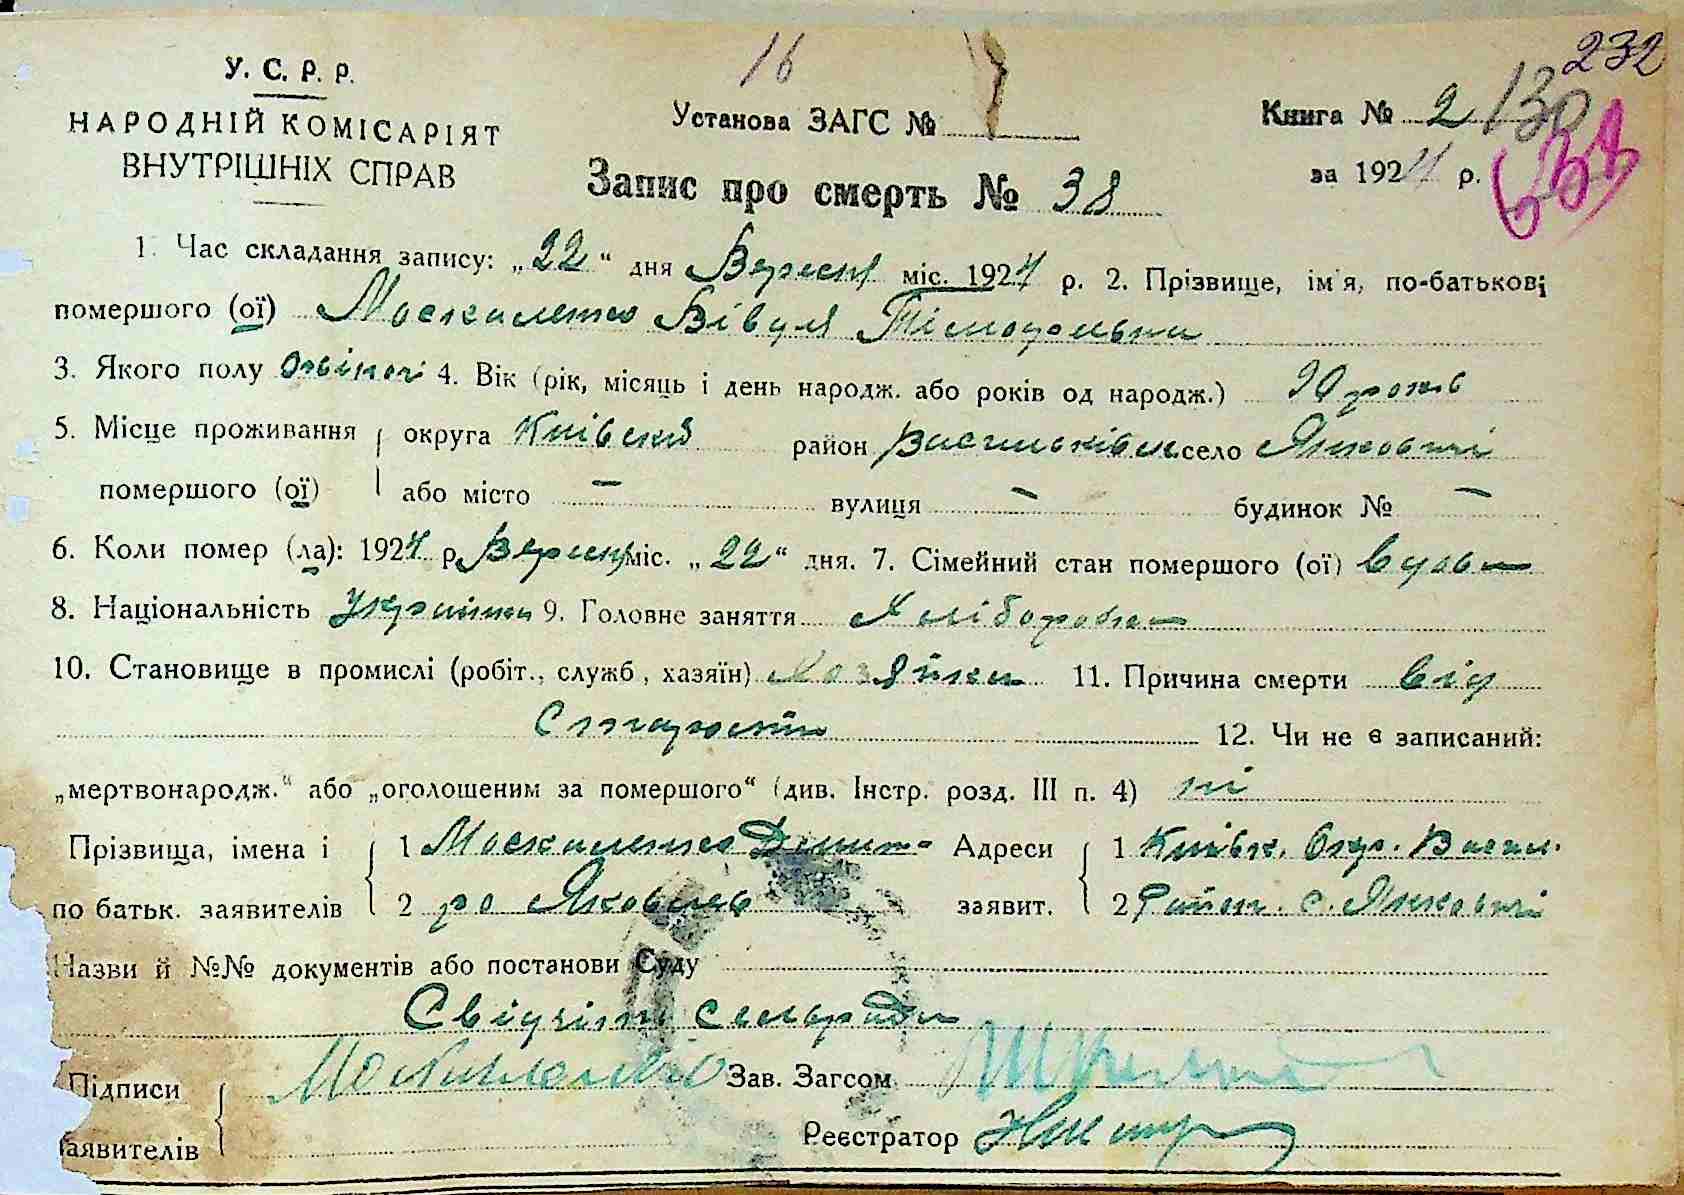 232
16
У. С. Р. Р.
НАРОДНІЙ КОМІСАРІЯТ
ВНУТРІШНІХ СПРАВ
Установа ЗАГС №
Книга № 2 130
за 1924 р. 638
Запис про смерть № 38
1. Час складання запису: „22“ дня Вересня міс. 1924 р. 2. Прізвище, ім'я, по-батькові
помершого (ої) Москаленко
3. Якого полу жіночі 4. Вік (рік, місяць і день народж. або років од народж.) років
5. Місце проживання округа Київська район Васильківськ село Янковичі
помершого (ої) або місто — вулиця — будинок № —
6. Коли помер (ла): 1924 р. Вересня міс. „22“ дня. 7. Сімейний стан помершого (ої) вдова
8. Національність Українка 9. Головне заняття Хліборобка
10. Становище в промислі (робіт., служб, хазяїн) Хозяйка 11. Причина смерти від
старости 12. Чи не є записаний:
„мертвонародж.“ або „оголошеним за помершого“ (див. Інстр. розд. III п. 4) ні
Прізвища, імена і 1 Москаленко Дмит- Адреси 1 Київск. Окр. Васил.
по батьк. заявителів 2 ро Яковлев заявит. 2 Район. с. Янковичі
Назви й №№ документів або постанови Суду
сельради
Підписи Москаленко Зав. Загсом
заявителів Реєстратор